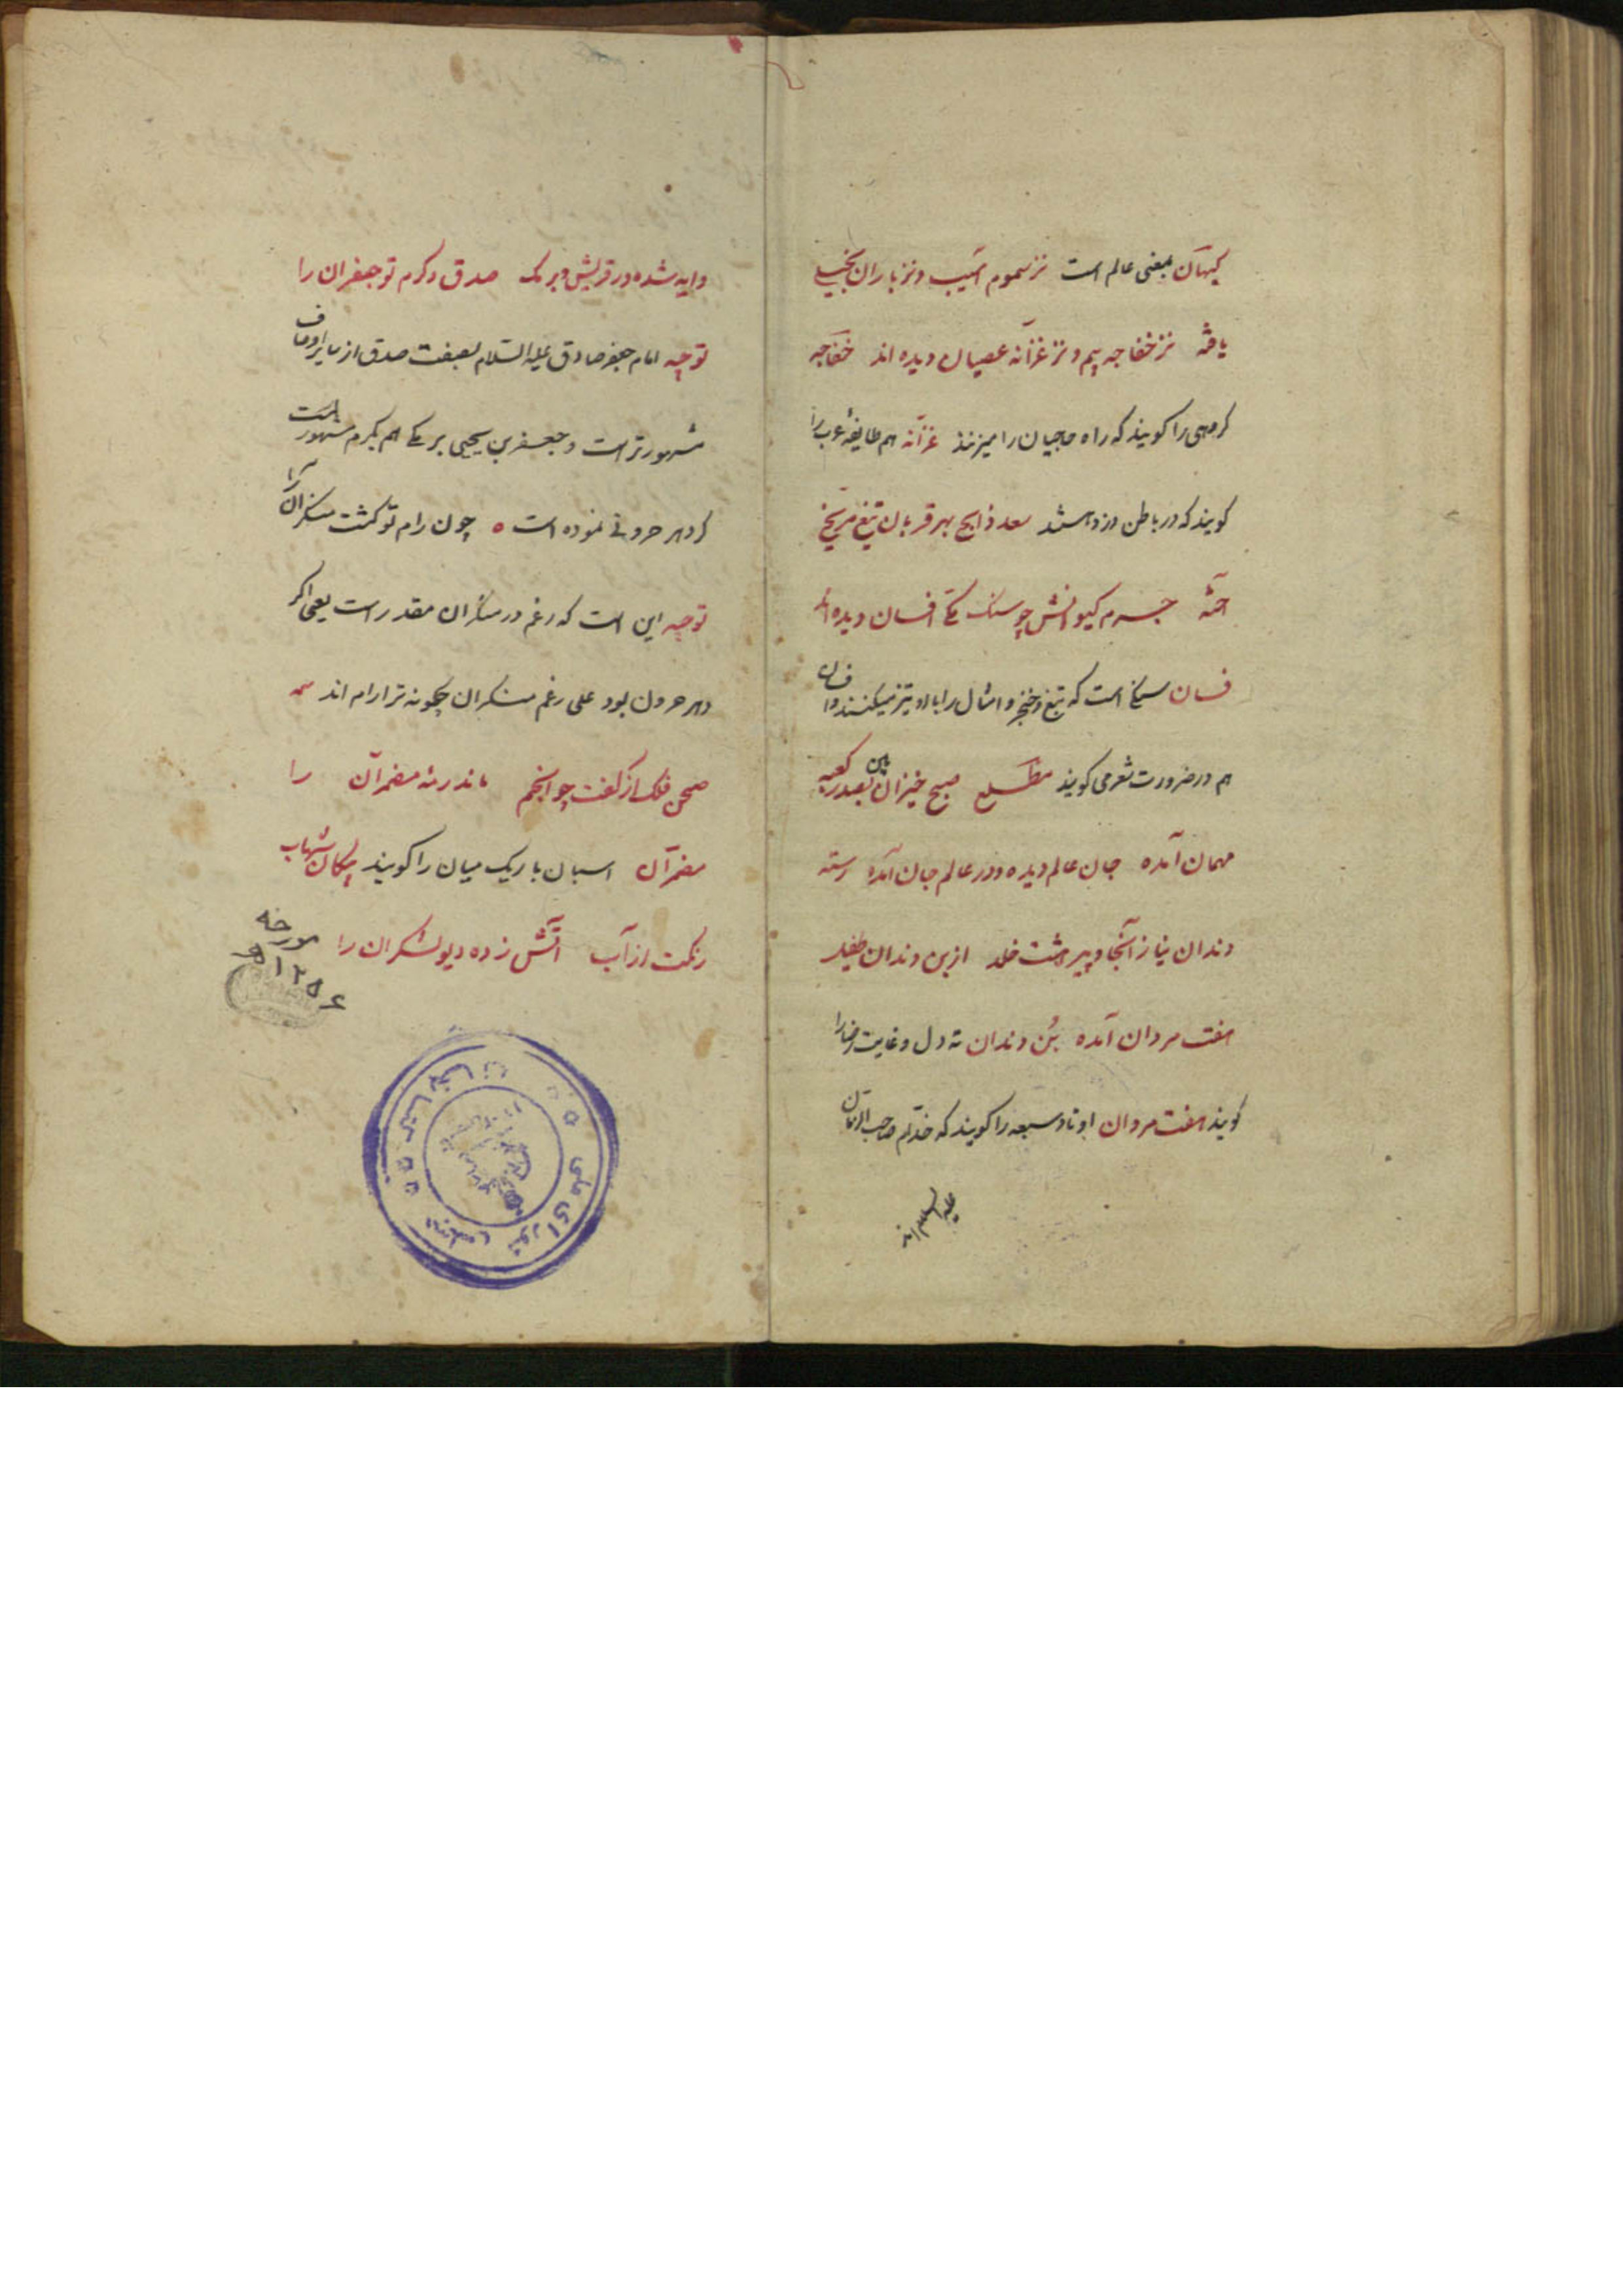 کیهان بمعنی عالم است نز سموم آسیب و نز باران بخیلی
یافته نز خفاجه بیم و نز غزانه عصیان دیده اند خفاجه
کروهی را کویند که راه حاجیان را میزنند غزانه هم طایفهٔ عرب را
کویند که در باطن دزد هستند سعد ذابح بهر قربان تیغ مریخ
آخته جرم کیوانش چو سنک مکی افسان دیده اند
فسان سنکی است که تیغ و خنجر و امثال را با او تیز میکنند و افسان
هم در ضرورت شعر می کویند مطلع صبح خیزان بین بصدر کعبه
مهمان آمده جان عالم دیده و در عالم جان آمده رسته
دندان نیاز آنجا و پیر هشت خلد از بن دندان طفیل
هفت مردان آمده بُن دندان ته دل و غایت رضا را
کویند هفت مردان اوتاد سبعه را کویند که خدّام صاحب الزمان
علیه السلام اند
دایه شده در قریش و برمک صدق و کرم تو جعفران را
توجیه امام جعفر صادق علیه السّلام بصفت صدق از سایر اوصاف
مشهورتر است و جعفر بن یحیی برمکی هم بکرم مشهور است
کر دهر حرونی نموده است چون رام تو کشت منکران را
توجیه این است که رغم در منکران مقدر است یعنی اکر
دهر حرون بود علی رغم منکران چکونه ترا رام اند
صحن فلک از کفت چو انجم ماند رمه مضمران را
مضمران اسبان باریک میان را کویند پیکان شهاب
رنکت از آب آتش زده دیو لشکران را
مورخه
۱۲۵۶
کتابخانه مجلس شورای ملی